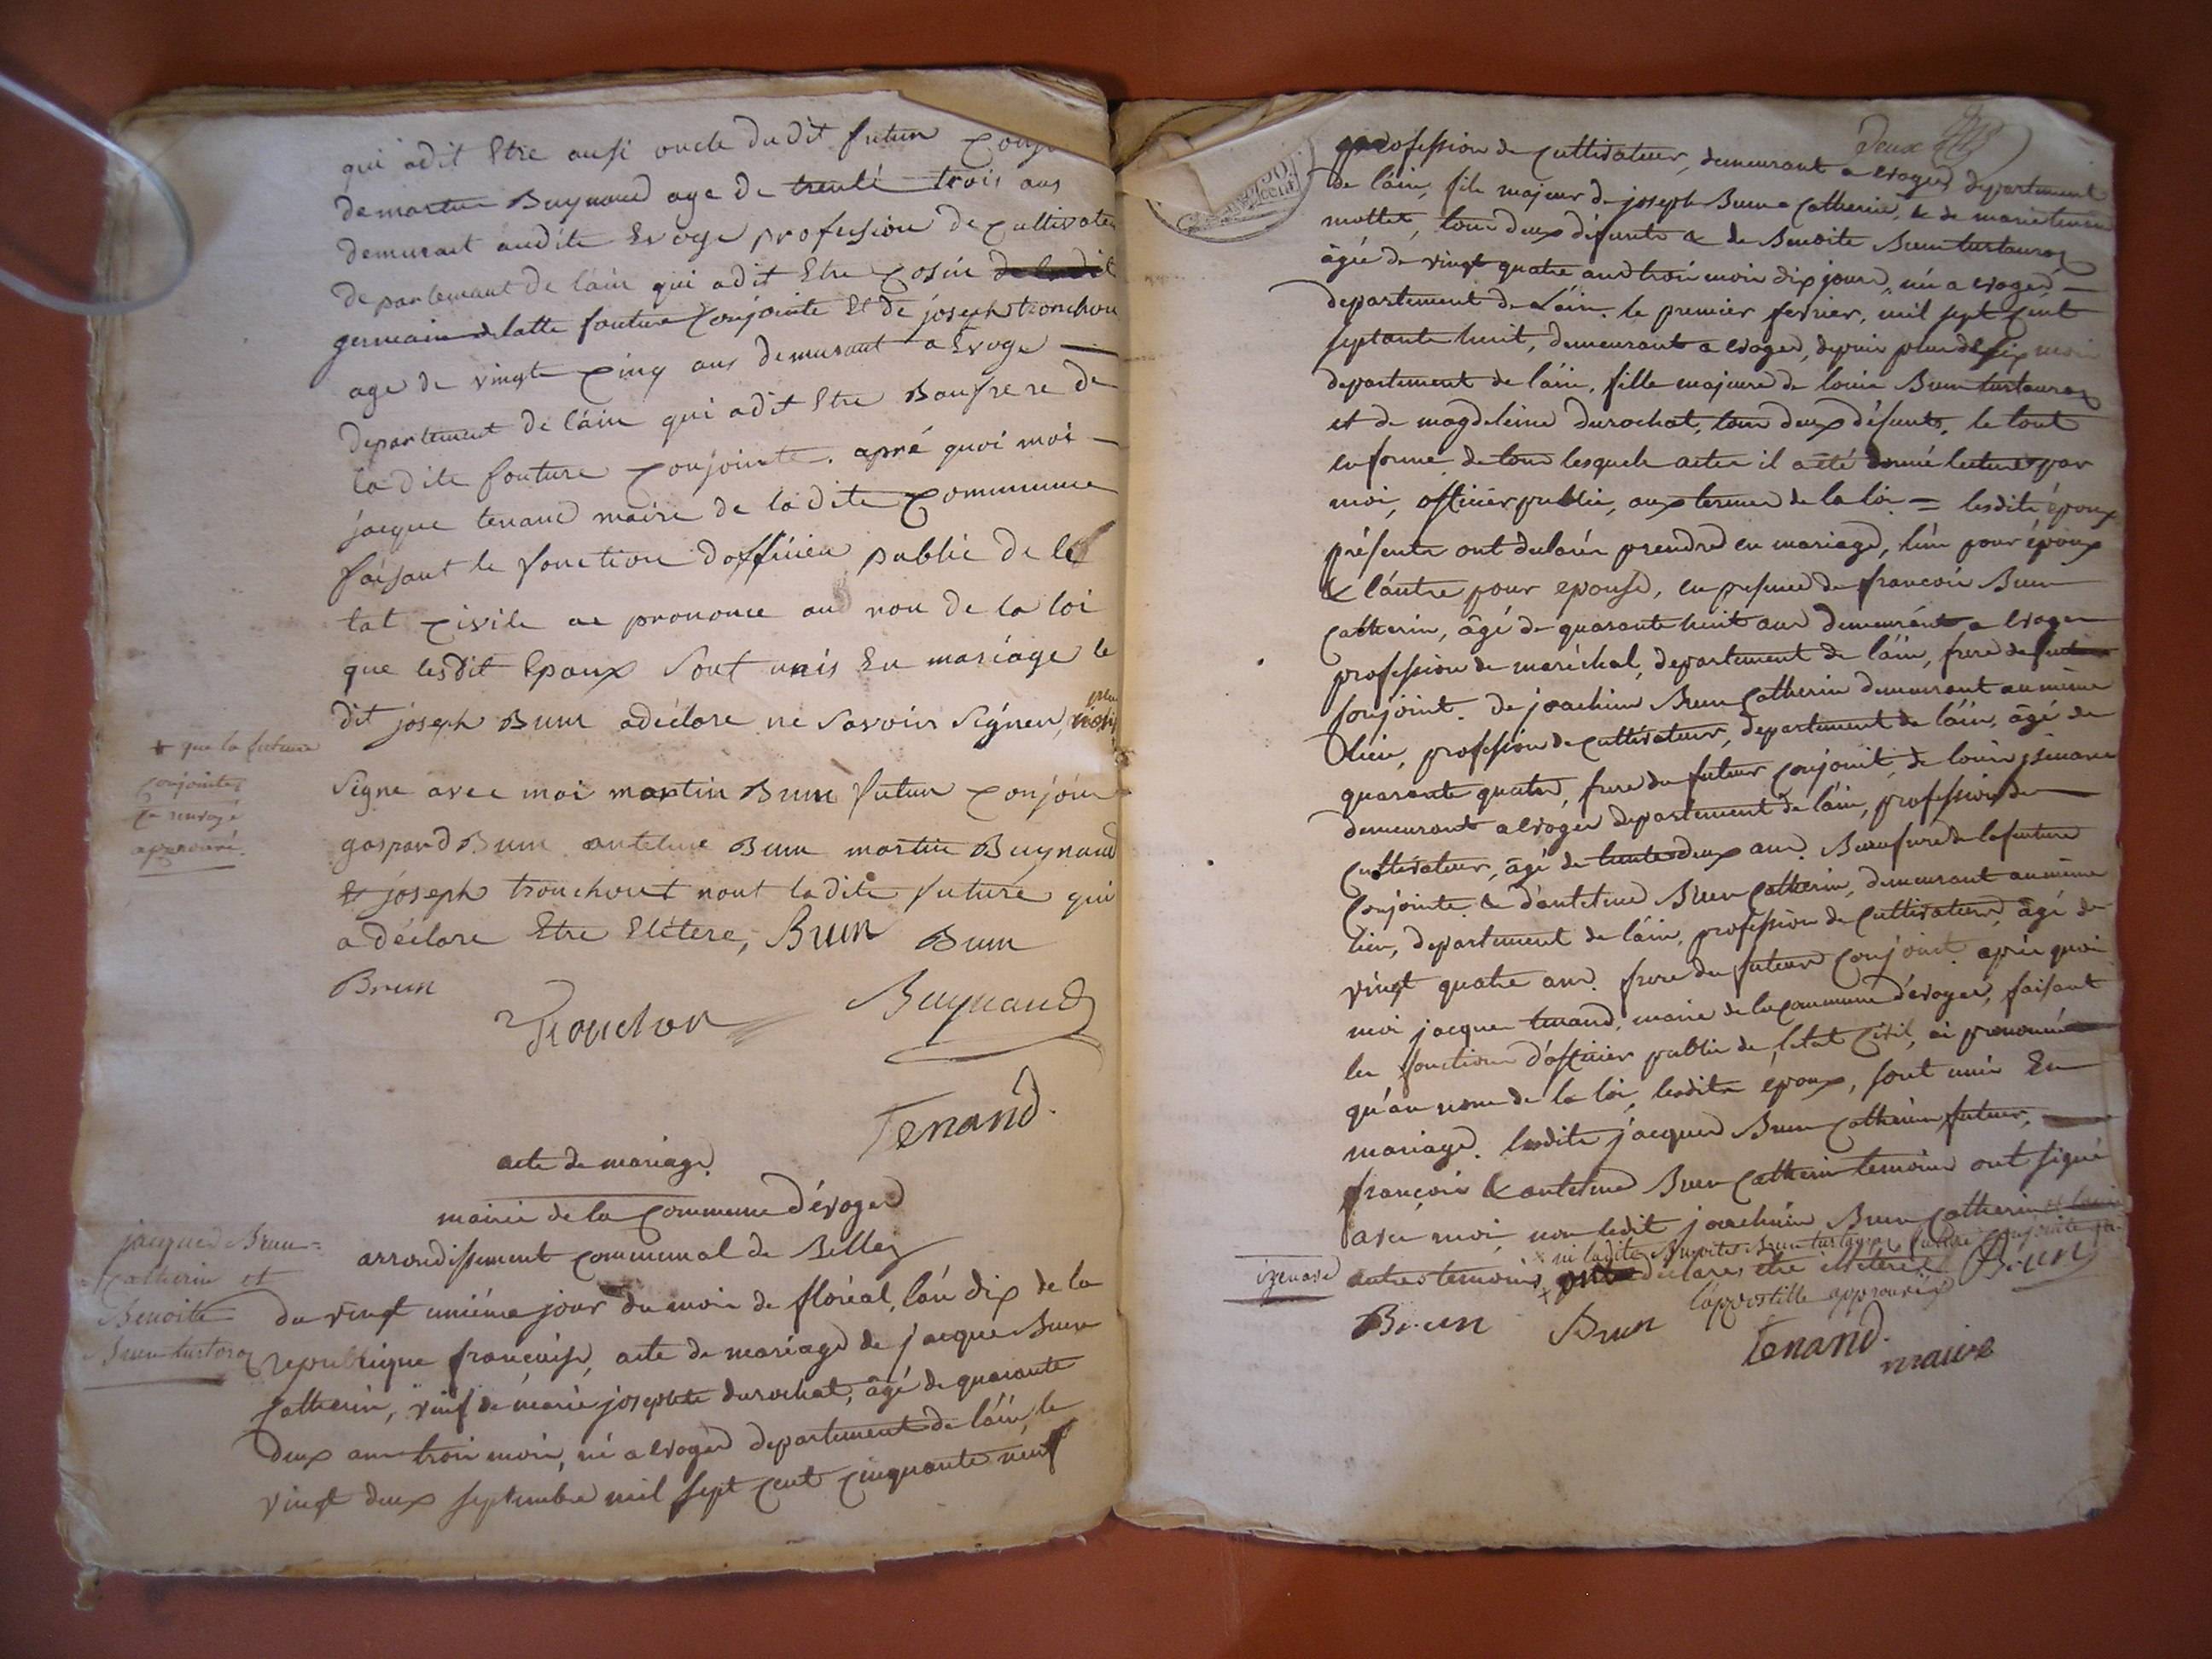 qui adit Etre ausi oncle du dit futur
de martin Buynand age de trente trois ans
demurant audite Evoge profesion de Cultivateu
departemant de láin qui adit Etre Cosin
germain de latte fouture Conjointe Et de joseph tronchon
age de vingte Cinq ans demurant a Evoge
departement de láin qui adit Etre Baufrere de
la dite fouture Conjointe. apré quoi moi
jacque tenand maire de la dite Commune
faisant le fonction dofficier public de le
tat Civile ae prononce au non de la loi
que lesdit Epoux Sont unis En mariage le
dit joseph Brun adéclare ne Savoir Signer,
* que la future
conjointe
Ce renvoyé
approuvé.
Signe avec moi martin Brun futur Conjoin
gaspard Brun antelme Brun martin Buynand
et joseph tronchont nont ladite future qui
a déclare Etre Elétere, Brun Brun
Brun
Tronchon Buynand
Tenand.
acte de mariage.
mairie de la Commune d'évoges
arrondissement Communal de Belley
jacques Brun=
Catherin et
Benoite
Brun turtoroz
du vingt uniéme jour du mois de floréal, l'an dix de la
republique françaisse, acte de mariage de jacque Brun
Catherin, veuf de marie josephte durochat, âgé de quarante
deux ans trois mois, né a evoges departement de láin, le
vingt deux septembre mil sept Cent Cinquante neuf
Deux
profession de Cultivateur, demeurant a evoges departement
de láin, fils majeur de joseph Brun Catherin, & de marie
mollet, tous deux défunts & de Benoite Brun turtauroz
âgée de vingt quatre ans trois mois dix jours, née a evoges
departement de Láin, le premier fevrier, mil sept Cent
septante huit, demeurant a evoges, depuis plus de six mois
departement de láin, fille majeure de louis Brun turtauroz
et de magdeleine durochat, tous deux défunts, le tout
en forme, de tous lesquels actes il a été donné lecture par
moi, officier public, aux termes de la loi = lesdits époux
présents ont déclarés prendre en mariage, l'un pour époux
& l'autre pour epouse, en presence de françois Brun
Catherin, âgé de quarante huit ans demeurant a evoges
profession de maréchal, departement de láin, frere de futur
conjoint. De joachim Brun Catherin demeurant au même
lieu, profession de cultivateur, departement de láin, âgé de
quarante quatre, frere du futur Conjoint, de louis
demeurant a evoges departement de láin, profession de
Cultivateur, âgé de trente deux ans. Beaufrere de la future
Conjointe & d'antelme Brun Catherin, demeurant au même
lieu, departement de láin, profession de Cultivateur, âgé de
vingt quatre ans. frere du futur Conjoint. après quoi
moi jacques tenand, maire de la commune d'évoges, faisant
les fonctions d'officier public de l'etat Civil, ai prononcé
qu'au nom de la loi, lesdits époux, sont unis En
mariage. lesdits jacques Brun Catherin, futur,
françois & antelme Brun Catherin temoins ont signé
avec moi, non ledit joachim Brun Catherin et louis
× ni ladite Benoite Brun turtauroz future Conjointe
izenave autres temoins × declarés être illeteré Brun
l'appostille approuvée
Brun Brun Tenand.
maire